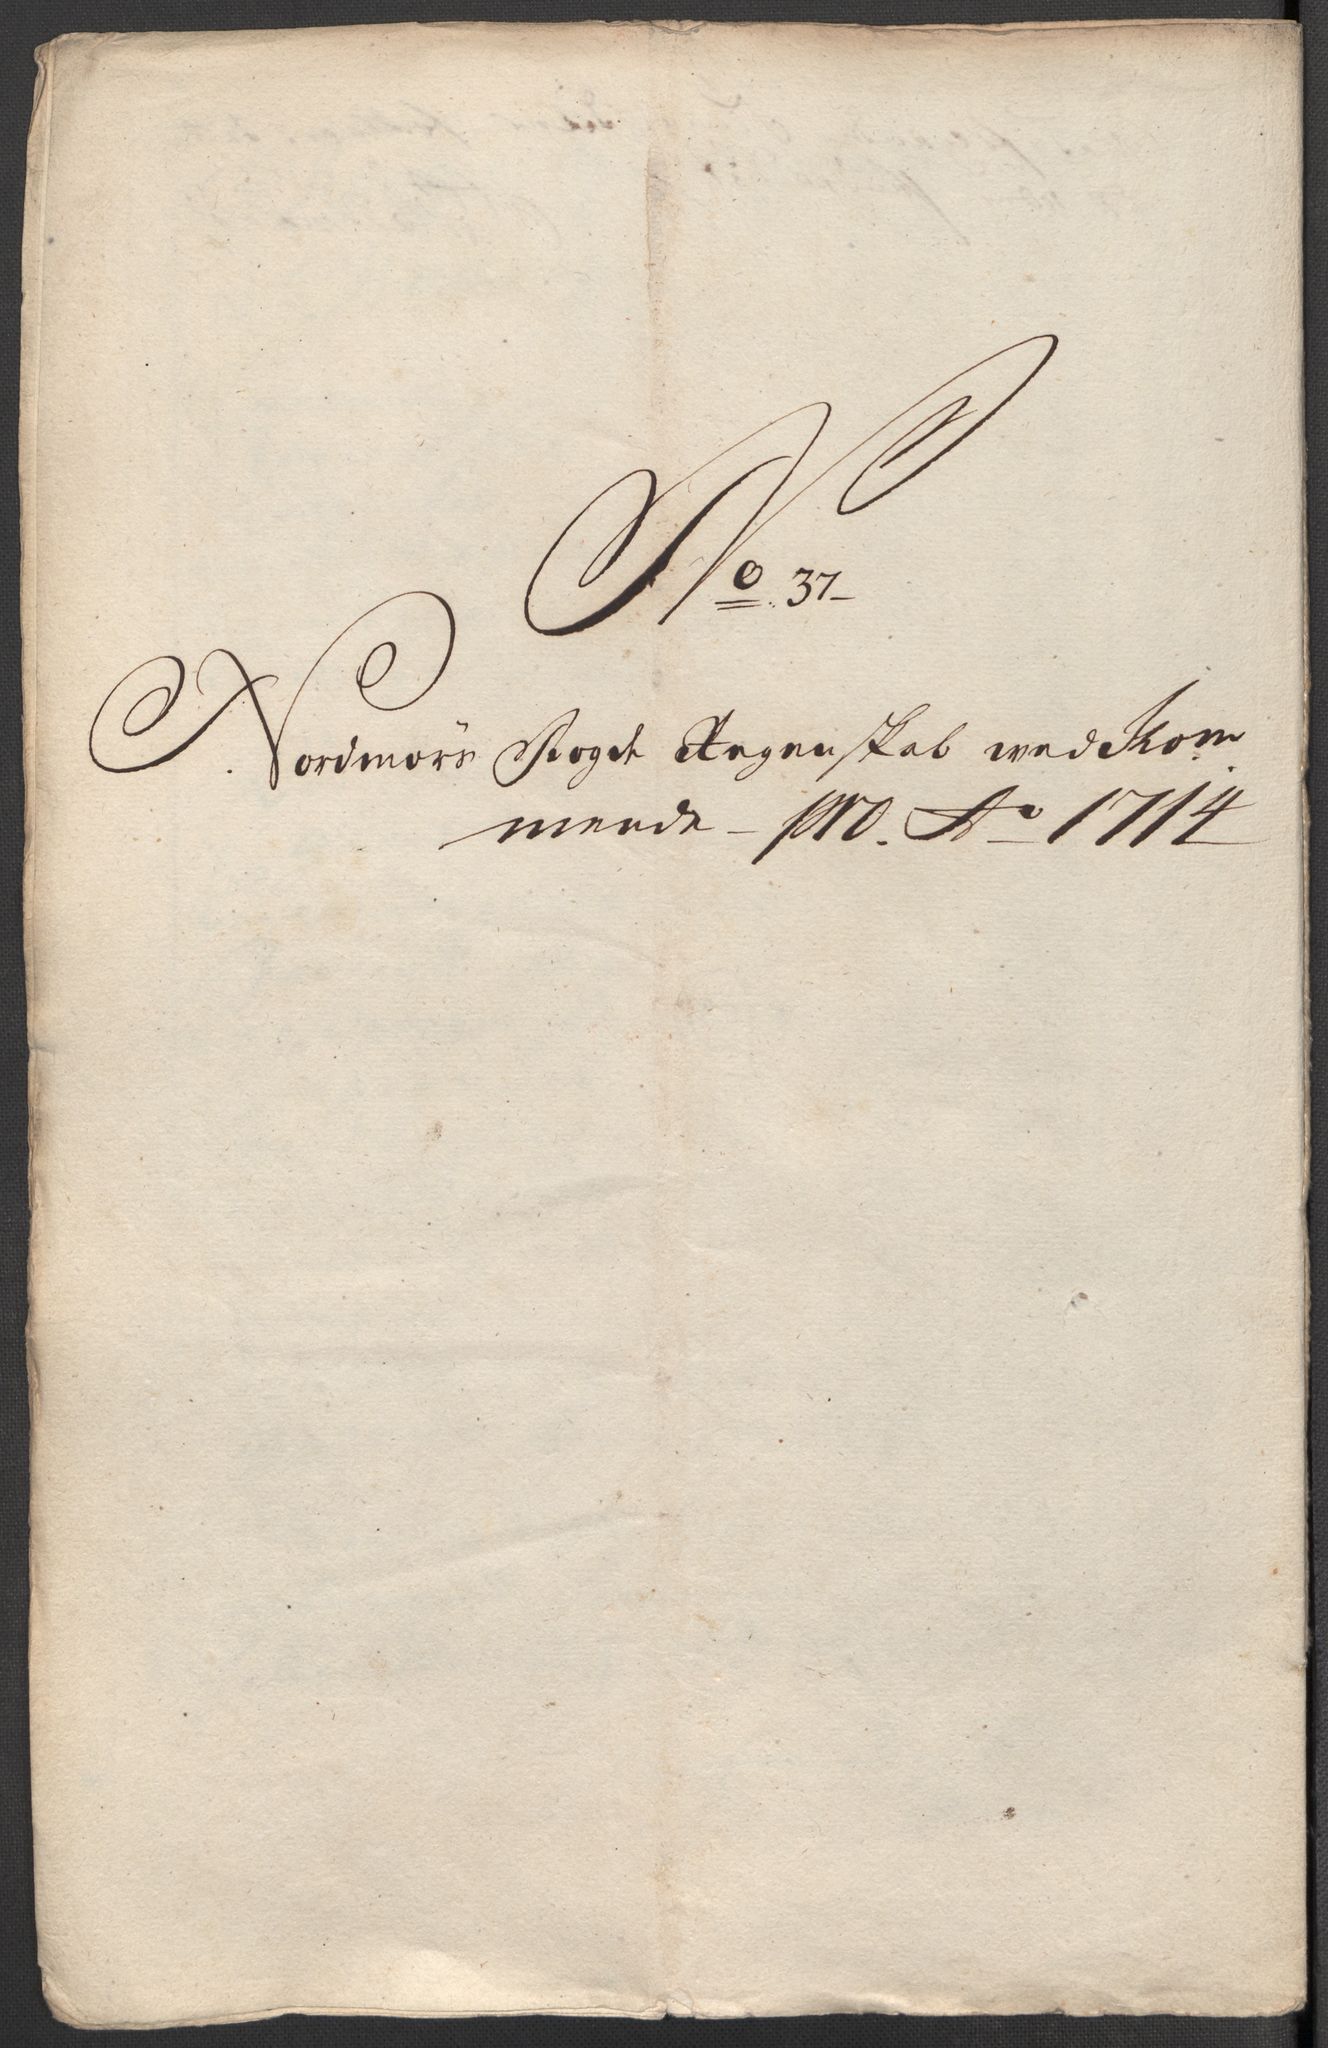 No. 37
Nordmørs Fogde Regenskab wedkom
mende - pro. Ao 1714